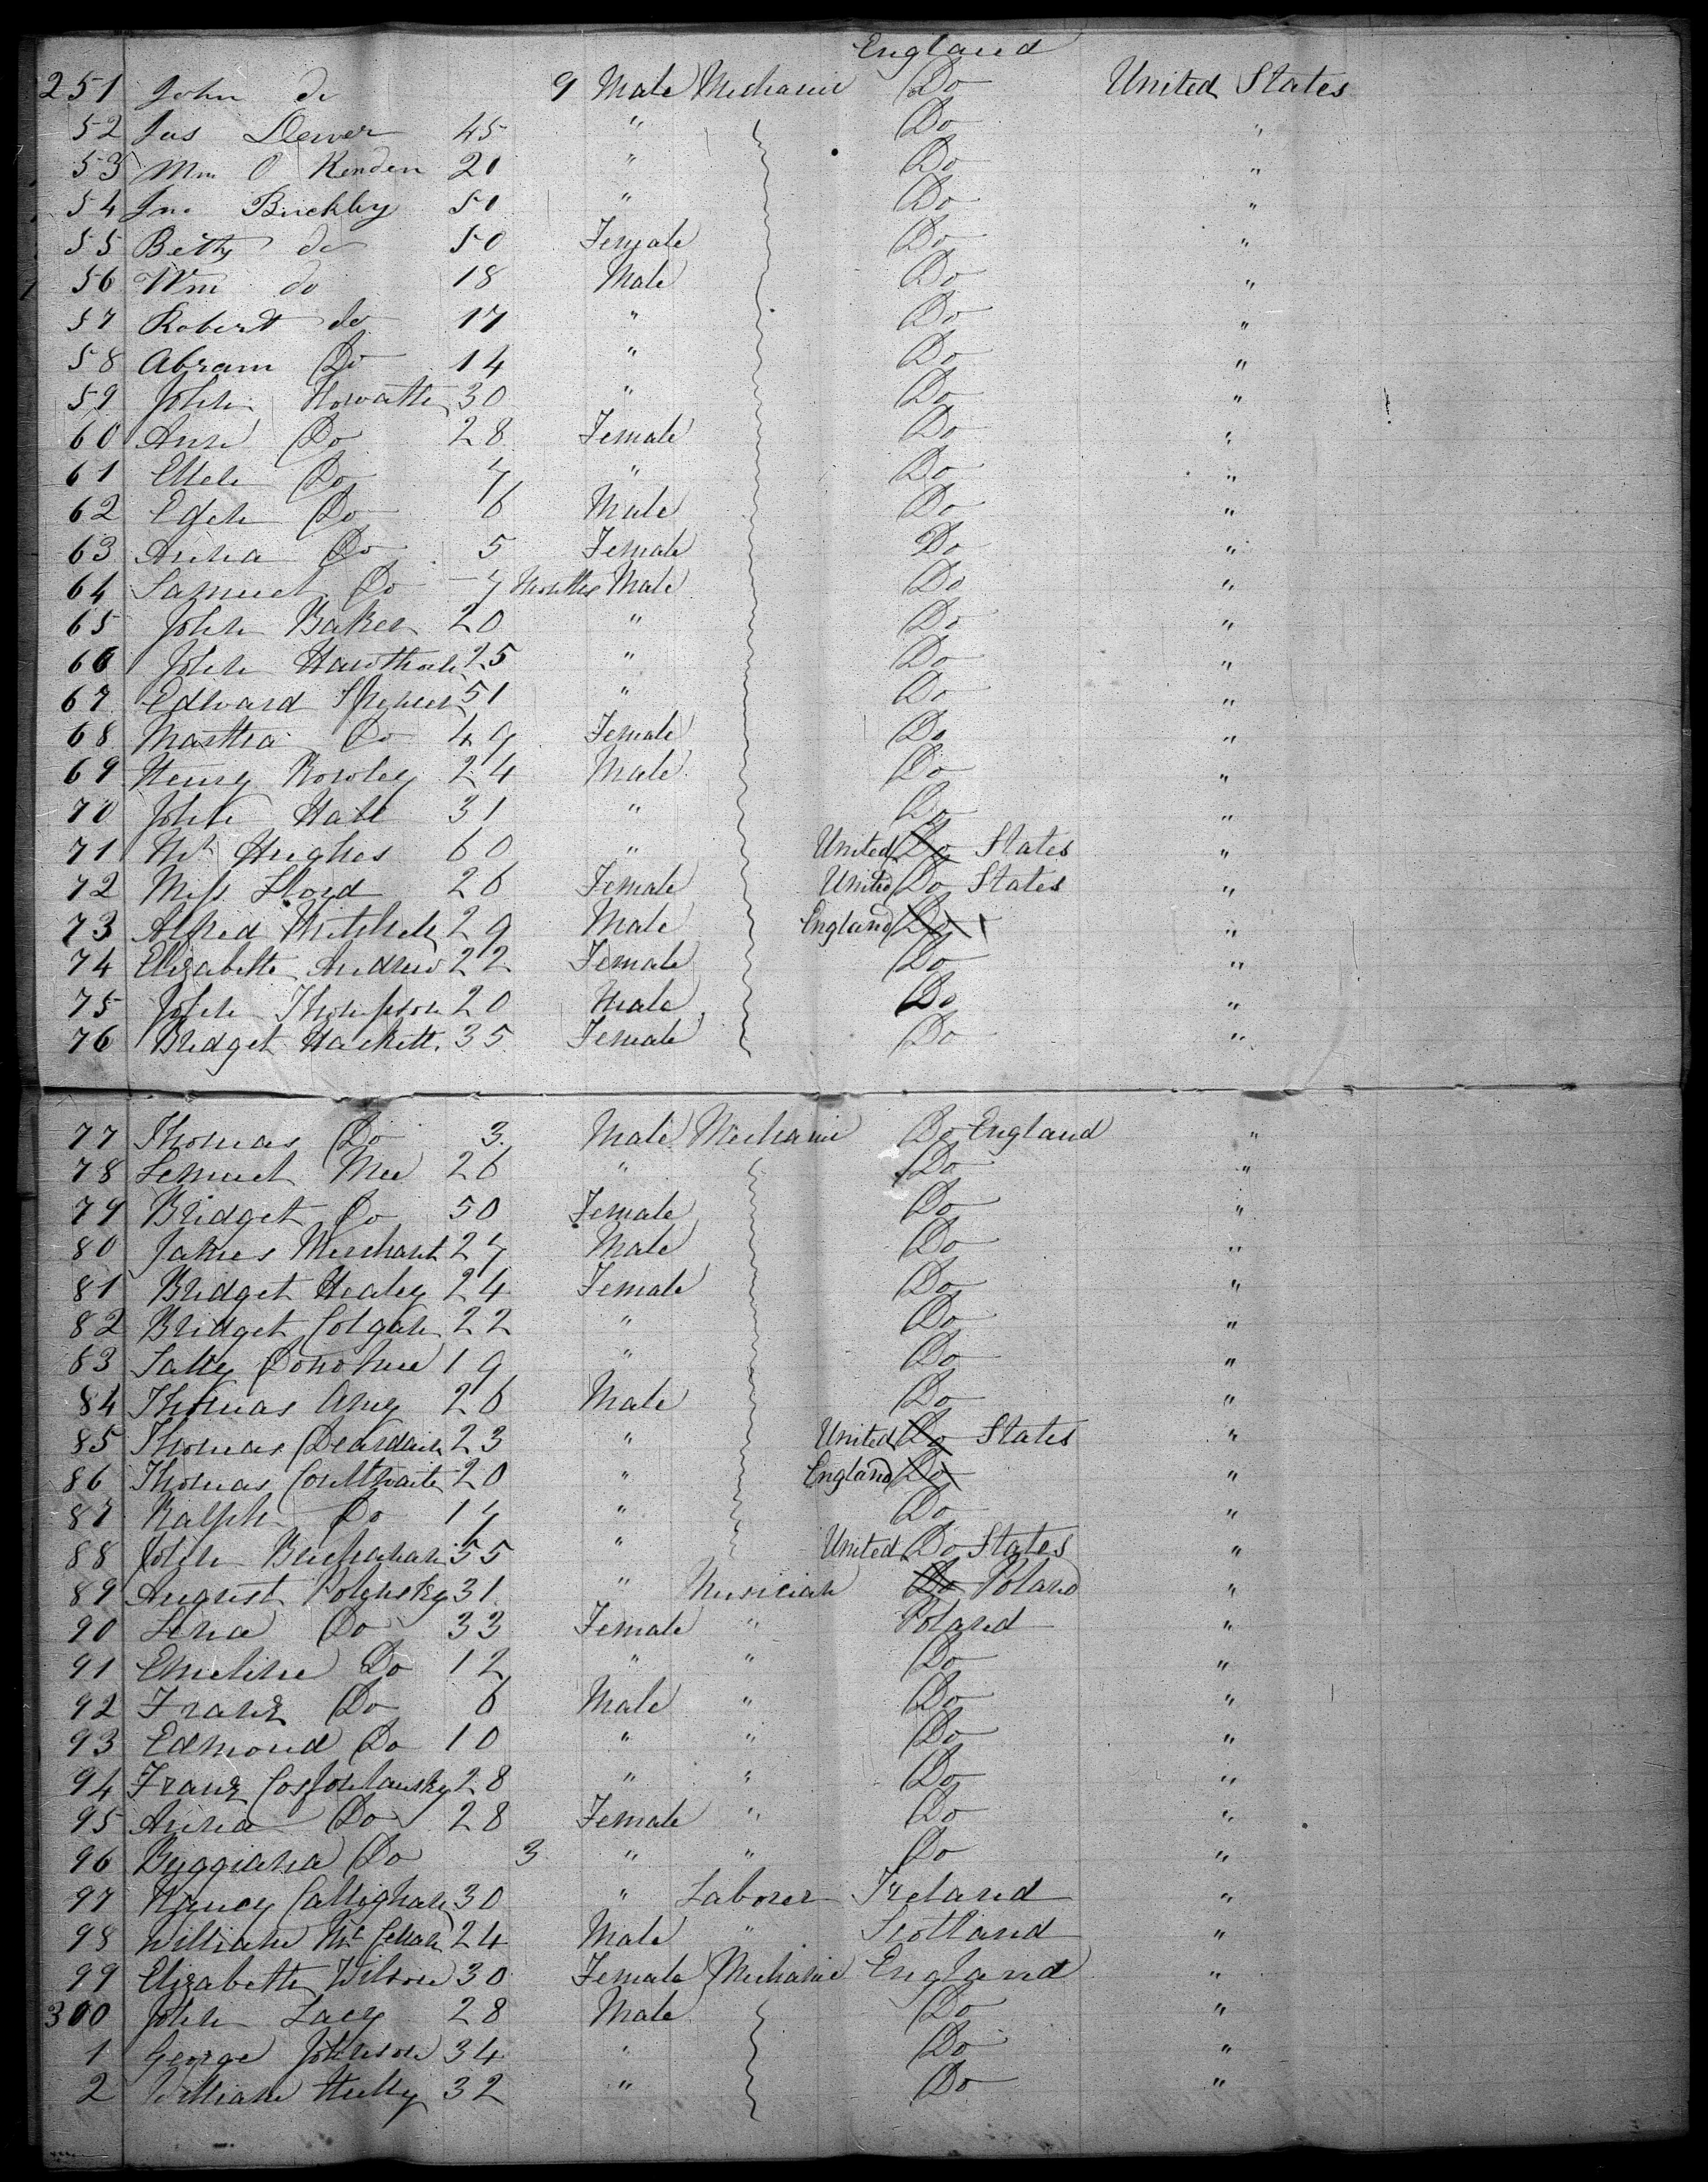 England
251 John do 9 Male Mechanic Do United States
52 Jas Dewer 45 " Do "
53 Wm O Kenden 20 " Do "
54 Jno Buckley 50 " Do "
55 Betty do 50 Female Do "
56 Wm do 18 Male Do "
57 Robert do 17 " Do "
58 Abram Do 14 " Do "
59 John Howatt 30 " Do "
60 Ann Do 28 Female Do "
61 Ellen Do 7 " Do "
62 Do 6 Male Do "
63 Anna Do 5 Female Do "
64 Samuel Do 7 Months Male Do "
65 John Baker 20 " Do "
66 John Hawthorn 25 " Do "
67 Edward Spencer 51 " Do "
68 Martha Do 49 Female Do "
69 Henry Rowley 24 Male Do "
70 John Hall 31 " Do "
71 Mr Hughes 60 " United Do States "
72 Miss Lloyd 26 Female United Do States "
73 Alfred Mitchell 29 Male England Do "
74 Elizabeth Andrew 22 Female Do "
75 John Thompson 20 Male Do "
76 Bridget Hackett 35 Female Do "
77 Thomas Do 3 Male Mechanic Do England "
78 Lemuel Mee 26 " Do "
79 Bridget Do 50 Female Do "
80 James Merchant 27 Male Do "
81 Bridget Healey 24 Female Do "
82 Bridget Colgan 22 " Do "
83 Sally Donohue 19 " Do "
84 Thomas Amy 26 Male Do "
85 Thomas Deardain 23 " United Do States "
86 Thomas Coulthwaite 20 " England Do "
87 Ralph Do 17 " Do "
88 John Buchanan 55 " United Do States "
89 August Polensky 31 " Musician Do Poland "
90 Lena Do 33 Female " Poland "
91 Emeline Do 12 " " Do "
92 Franz Do 6 Male " Do "
93 Edmond Do 10 " " Do "
94 Franz 28 " " Do "
95 Anna Do 28 Female " Do "
96 Do 3 " " Do "
97 Nancy Callighan 30 " Laborer Ireland "
98 William 24 Male " Scotland "
99 Elizabeth Wilson 30 Female Mechanic England "
300 John Lacy 28 Male Do "
1 George Johnson 34 " Do "
2 William Hully 32 " Do "